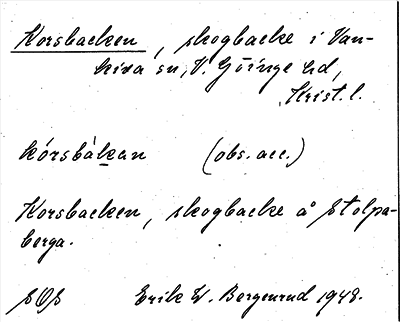 Korsbacken, skogbacke i Van-
kiva sn, V. Göinge hd,
Krist. l.
kórsbàkan (obs. acc.)
Korsbacken, skogbacke å Stolpa-
berga.
SOS Erik W. Bergenrud 1948.